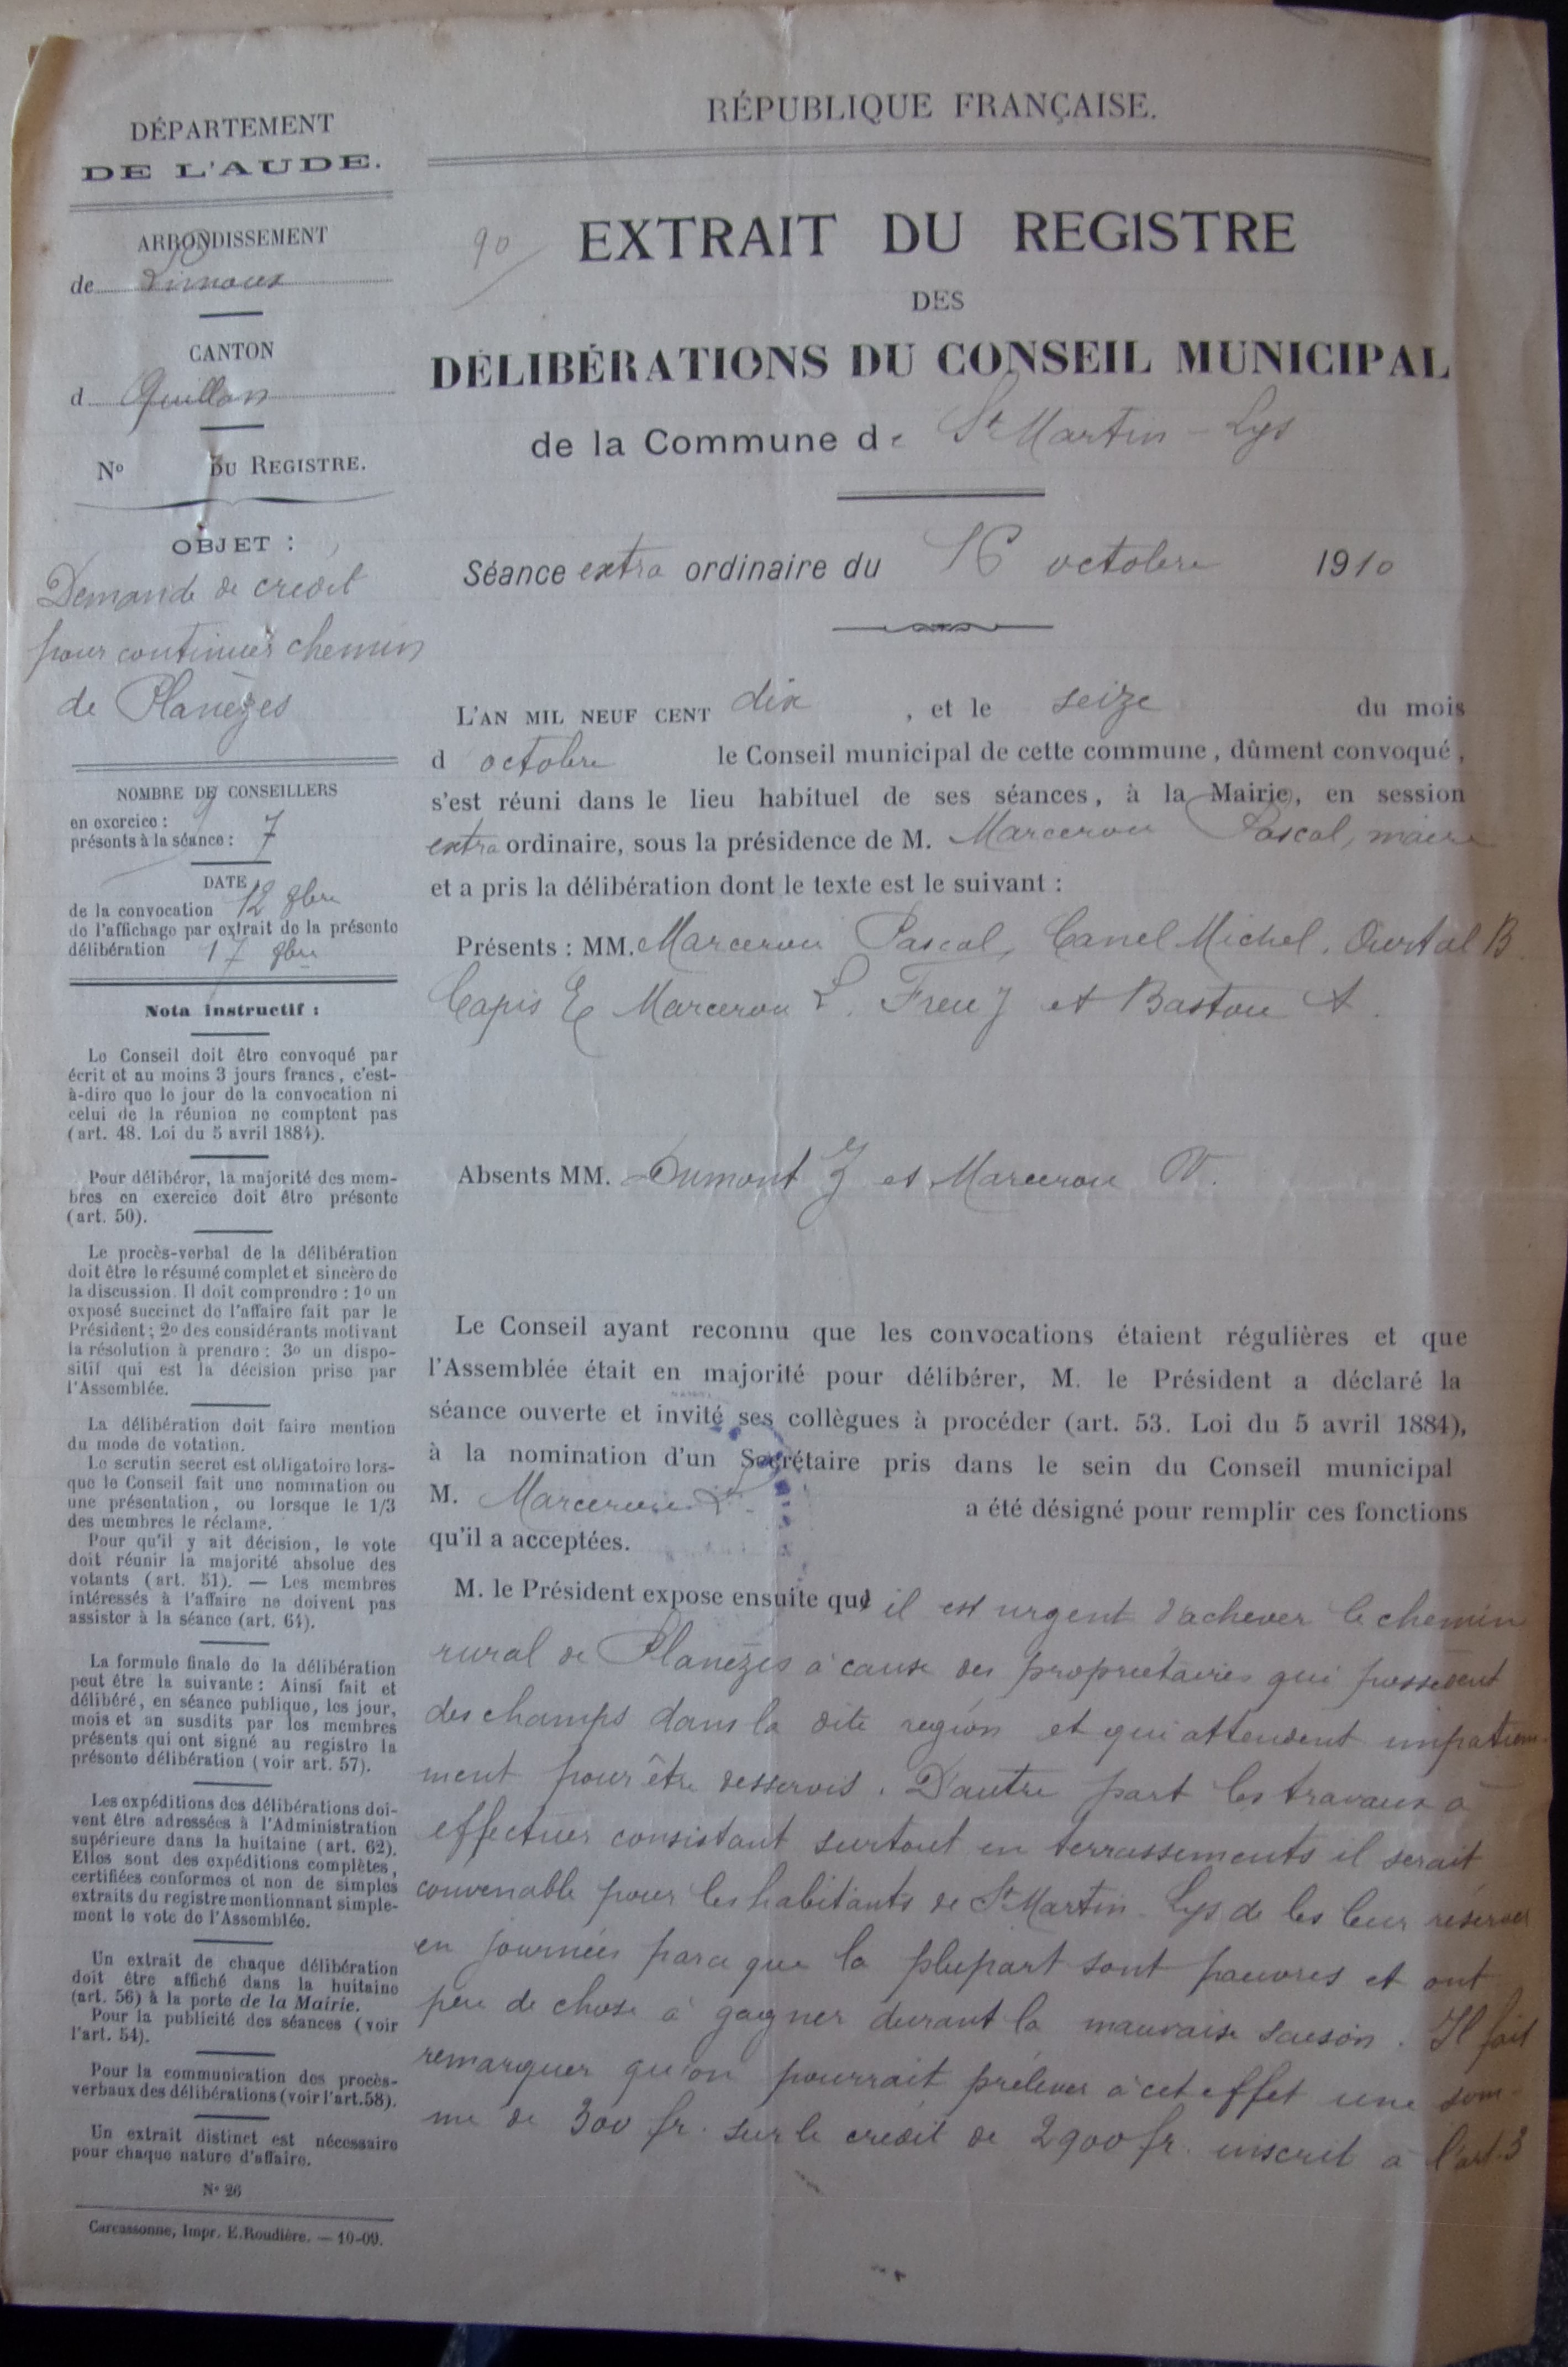 DÉPARTEMENT
DE L'AUDE.
ARRONDISSEMENT
de Limoux
CANTON
d Quillan
N° DU REGISTRE.
OBJET :
Demande de crédit
pour continuer chemin
de Planèzes
NOMBRE DE CONSEILLERS
en exercice : 9
présents à la séance : 7
DATE
de la convocation 12 8bre
de l'affichage par extrait de la présente
délibération 17 8bre
Nota instructif :
Le Conseil doit être convoqué par
écrit et au moins 3 jours francs, c'est-
à-dire que le jour de la convocation ni
celui de la réunion ne comptent pas
(art. 48. Loi du 5 avril 1884).
Pour délibérer, la majorité des mem-
bres en exercice doit être présente
(art. 50).
Le procès-verbal de la délibération
doit être le résumé complet et sincère de
la discussion. Il doit comprendre : 1° un
exposé succinct de l'affaire fait par le
Président ; 2° des considérants motivant
la résolution à prendre ; 3° un dispo-
sitif qui est la décision prise par
l'Assemblée.
La délibération doit faire mention
du mode de votation.
Le scrutin secret est obligatoire lors-
que le Conseil fait une nomination ou
une présentation, ou lorsque le 1/3
des membres le réclame.
Pour qu'il y ait décision, le vote
doit réunir la majorité absolue des
votants (art. 51). — Les membres
intéressés à l'affaire ne doivent pas
assister à la séance (art. 64).
La formule finale de la délibération
peut être la suivante : Ainsi fait et
délibéré, en séance publique, les jour,
mois et an susdits par les membres
présents qui ont signé au registre la
présente délibération (voir art. 57).
Les expéditions des délibérations doi-
vent être adressées à l'Administration
supérieure dans la huitaine (art. 62).
Elles sont des expéditions complètes,
certifiées conformes et non de simples
extraits du registre mentionnant simple-
ment le vote de l'Assemblée.
Un extrait de chaque délibération
doit être affiché dans la huitaine
(art. 56) à la porte de la Mairie.
Pour la publicité des séances (voir
l'art. 54).
Pour la communication des procès-
verbaux des délibérations (voir l'art. 58).
Un extrait distinct est nécessaire
pour chaque nature d'affaire.
N° 26
Carcassonne, Impr. E. Roudière. — 10-09.
RÉPUBLIQUE FRANÇAISE.
90
EXTRAIT DU REGISTRE
DES
DÉLIBÉRATIONS DU CONSEIL MUNICIPAL
de la Commune de St Martin-Lys
Séance extra ordinaire du 16 octobre 1910
L'AN MIL NEUF CENT dix, et le seize du mois
d octobre le Conseil municipal de cette commune, dûment convoqué,
s'est réuni dans le lieu habituel de ses séances, à la Mairie, en session
extra ordinaire, sous la présidence de M. Marcerou Pascal, maire
et a pris la délibération dont le texte est le suivant :
Présents : MM. Marcerou Pascal, Canel Michel, Ourtal B.
Capis E Marcerou L. Freu J et Bastou A.
Absents MM. Dumont J et Marcerou V.
Le Conseil ayant reconnu que les convocations étaient régulières et que
l'Assemblée était en majorité pour délibérer, M. le Président a déclaré la
séance ouverte et invité ses collègues à procéder (art. 53. Loi du 5 avril 1884),
à la nomination d'un Secrétaire pris dans le sein du Conseil municipal
M. Marcerou L. a été désigné pour remplir ces fonctions
qu'il a acceptées.
M. le Président expose ensuite qu' il est urgent d'achever le chemin
rural de Planèzes à cause des propriétaires qui possèdent
des champs dans la dite région et qui attendent impatiem-
ment pour être desservis. D'autre part les travaux à
effectuer consistant surtout en terrassements il serait
convenable pour les habitants de St Martin-Lys de les leur réserver
en journées parce que la plupart sont pauvres et ont
peu de chose à gagner durant la mauvaise saison. Il fait
remarquer qu'on pourrait prélever à cet effet une som-
me de 300 fr. sur le crédit de 2900 fr. inscrit à l'art. 3